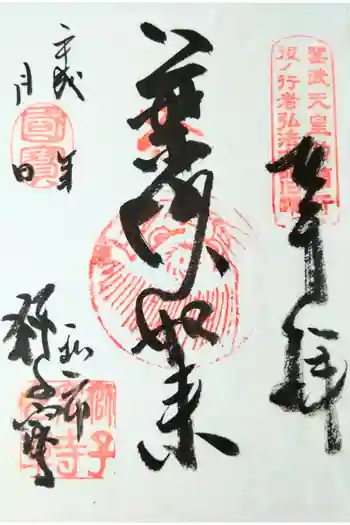 聖武天皇勅願所
役ノ行者弘法大師旧跡
奉拝
薬師如来
平成 年
月 日
國寶
私市
獅子窟寺
獅子窟寺